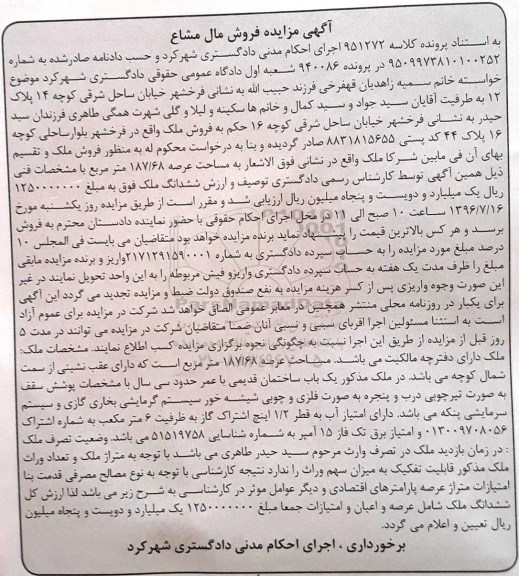 آگهی مزایده فروش مال مشاع
به استناد پرونده کلاسه ۹۵۱۲۷۲ اجرای احکام مدنی دادگستری شهرکرد و حسب دادنامه صادرشده به شماره
۹۵۰۹۹۷۳۸۱۰۱۰۰۲۵۲ در پرونده ۹۴۰۰۸۶ شعبه اول دادگاه عمومی حقوقی دادگستری شهرکرد موضوع
خواسته خانم سمیه زاهدیان قهفرخی فرزند حبیب الله به نشانی فرخشهر خیابان ساحل شرقی کوچه ۱۴ پلاک
۱۲ به طرفیت آقایان سید جواد و سید کمال و خانم ها سکینه و لیلا و گلی شهرت همگی طاهری فرزندان سید
حیدر به نشانی فرخشهر خیابان ساحل شرقی کوچه ۱۶ حکم به فروش ملک واقع در فرخشهر بلوارساحلی کوچه
۱۶ پلاک ۴۴ کد پستی ۸۸۳۱۸۱۵۶۵۵ صادر گردیده و بنا به درخواست محکوم له به منظور فروش ملک و تقسیم
بهای آن فی مابین شرکا ملک واقع در نشانی فوق الاشعار به مساحت عرصه ۱۸۷/۶۸ متر مربع با مشخصات فنی
ذیل همین آگهی توسط کارشناس رسمی دادگستری توصیف و ارزش ششدانگ ملک فوق به مبلغ ۱۲۵۰۰۰۰۰۰۰
ریال یک میلیارد و دویست و پنجاه میلیون ریال ارزیابی شد و مقرر است از طریق مزایده روز یکشنبه مورخ
۱۳۹۶/۷/۱۶ ساعت ۱۰ صبح الی ۱۱ در محل اجرای احکام حقوقی با حضور نماینده دادستان محترم به فروش
برسد و هر کس بالاترین قیمت را پیشنهاد نماید برنده مزایده خواهد بود متقاضیان می بایست فی المجلس ۱۰
درصد مبلغ مورد مزایده را به حساب سپرده دادگستری به شماره ۲۱۷۱۲۹۱۵۹۰۰۰۱واریز و برنده مزایده مابقی
مبلغ را ظرف مدت یک هفته به حساب سپرده دادگستری واریزو فیش مربوطه را به این واحد تحویل نمایند در غیر
این صورت وجوه واریزی پس از کسر هزینه مزایده به نفع صندوق دولت ضبط و مزایده تجدید می گردد این آگهی
برای یکبار در روزنامه محلی منتشر همچنین در معابر عمومی الصاق خواهد شد شرکت در مزایده برای عموم آزاد
است به استثنا مسئولین اجرا اقربای سببی و نسبی آنان ضمنا متقاضیان شرکت در مزایده می توانند در مدت ۵
روز قبل از مزایده از طریق این اجرا نسبت به چگونگی نحوه برگزاری مزایده کسب اطلاع نمایند. مشخصات ملک:
ملک دارای دفترچه مالکیت می باشد. مساحت عرصه ۱۸۷/۶۸ متر مربع است که دارای عقب نشینی از سمت
شمال کوچه می باشد. در ملک مذکور یک باب ساختمان قدیمی با عمر حدود سی سال با مشخصات پوشش سقف
به صورت تیرچوبی درب و پنجره به صورت فلزی و چوبی شیشه خور سیستم گرمایشی بخاری گازی و سیستم
سرمایشی پنکه می باشد. دارای امتیاز آب به قطر ۱/۲ اینچ اشتراک گاز به ظرفیت ۶ متر مکعب به شماره اشتراک
۰۱۳۰۰۹۷۰۸۰۵۶ و امتیاز برق تک فاز ۱۵ آمپر به شماره شناسایی ۵۱۵۱۹۷۵۸ می باشد. وضعیت تصرف ملک
: در زمان بازدید ملک در تصرف وارث مرحوم سید حیدر طاهری می باشد با توجه به متراژ ملک و تعداد وراث
ملک مذکور قابلیت تفکیک به میزان سهم وراث را ندارد نتیجه کارشناسی با توجه به نوع مصالح مصرفی قدمت بنا
امتیازات متراژ عرصه پارامترهای اقتصادی و دیگر عوامل موثر در کارشناسی به شرح زیر می باشد لذا ارزش کل
ششدانگ ملک شامل عرصه و اعیان و امتیازات جمعا مبلغ ۱۲۵۰۰۰۰۰۰۰ یک میلیارد و دویست و پنجاه میلیون
ریال تعیین و اعلام می گردد.
برخورداری ، اجرای احکام مدنی دادگستری شهرکرد